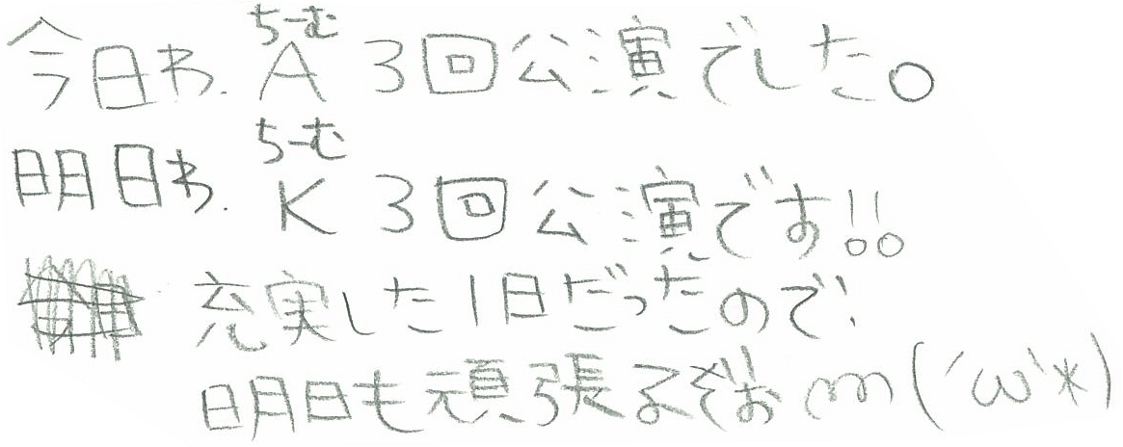 今日わ、ちーむA 3回公演でした。
明日わ、ちーむK 3回公演です!!
充実した1日だったので、
明日も頑張るぞぉm(´ω`*)